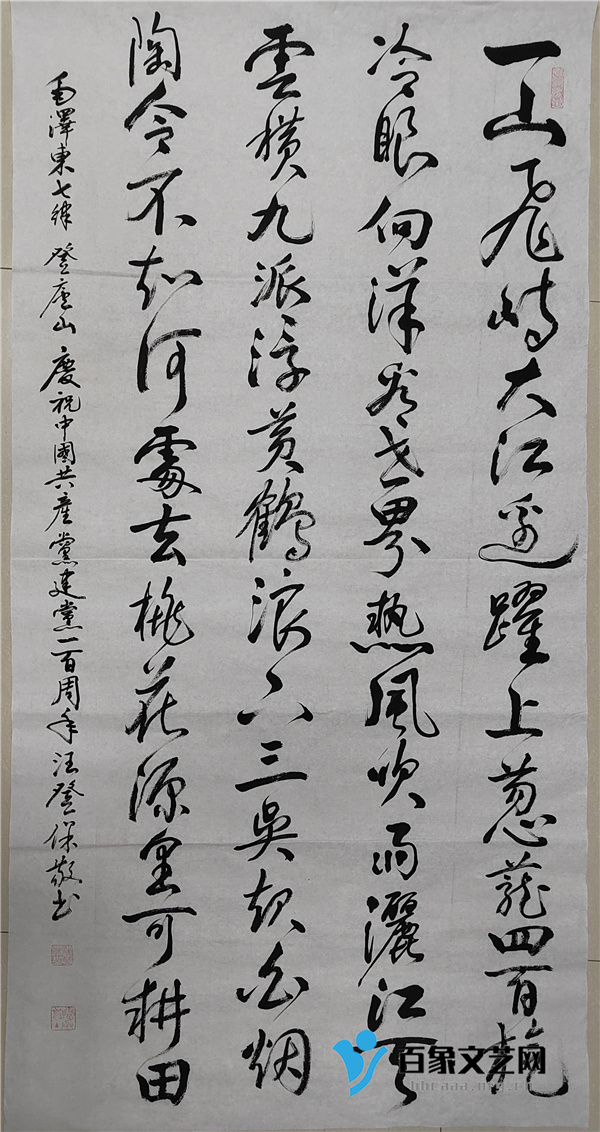 一山飛峙大江邊躍上葱蘢四百旋
冷眼向洋看世界熱風吹雨灑江天
雲橫九派浮黃鶴浪下三吳起白烟
陶令不知何處去桃花源里可耕田
毛澤東七律 登廬山 慶祝中國共產黨建黨一百周年汪登保敬书
百象文艺网